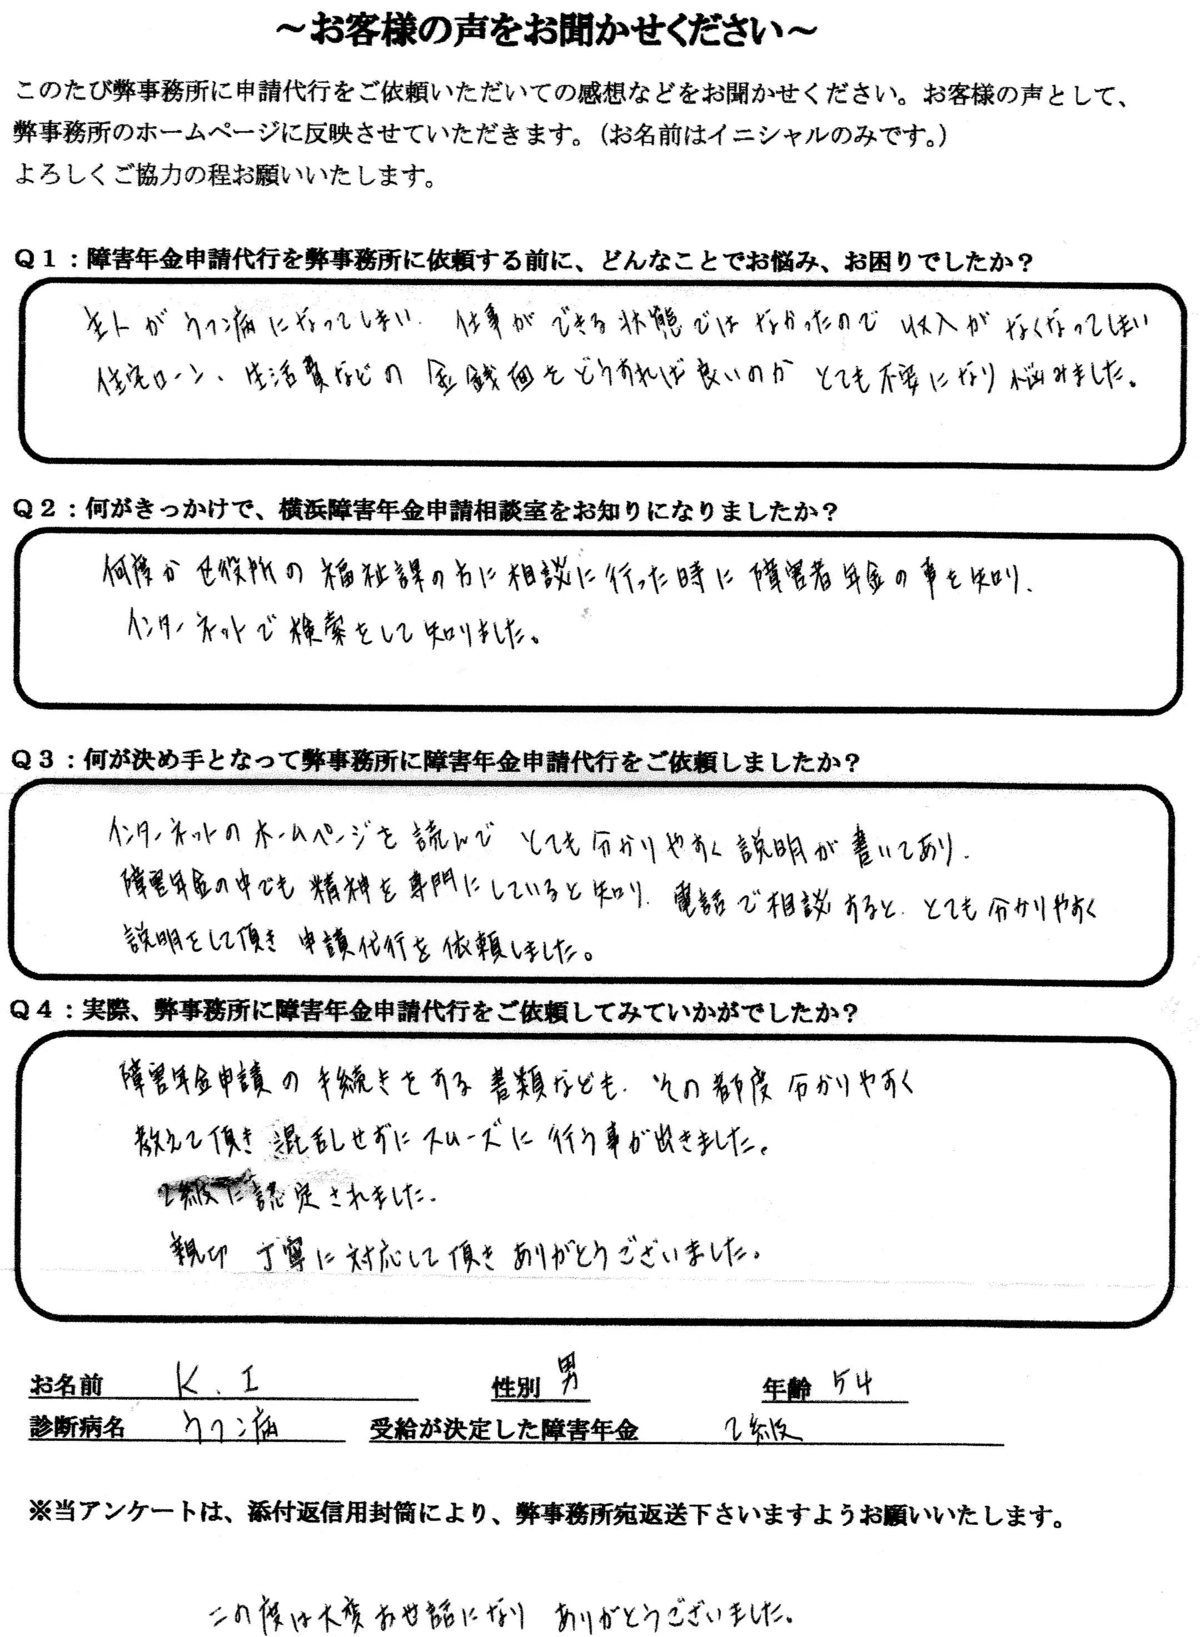 ～お客様の声をお聞かせください～
このたび弊事務所に申請代行をご依頼いただいての感想などをお聞かせください。お客様の声として、
弊事務所のホームページに反映させていただきます。（お名前はイニシャルのみです。）
よろしくご協力の程お願いいたします。
Q1：障害年金申請代行を弊事務所に依頼する前に、どんなことでお悩み、お困りでしたか？
主人がうつ病になってしまい、仕事ができる状態ではなかったので収入がなくなってしまい
住宅ローン、生活費などの金銭面をどうすれば良いのかとても不安になり悩みました。
Q2：何がきっかけで、横浜障害年金申請相談室をお知りになりましたか？
何度か区役所の福祉課の方に相談に行った時に障害者年金の事を知り、
インターネットで検索をして知りました。
Q3：何が決め手となって弊事務所に障害年金申請代行をご依頼しましたか？
インターネットのホームページを読んでとても分かりやすく説明が書いてあり、
障害年金の中でも精神を専門にしていると知り、電話で相談すると、とても分かりやすく
説明をして頂き申請代行を依頼しました。
Q4：実際、弊事務所に障害年金申請代行をご依頼してみていかがでしたか？
障害年金申請の手続きをする書類なども、その都度分かりやすく
教えて頂き混乱しせずにスムーズに行う事が出きました。
2級に認定されました。
親切丁寧に対応して頂きありがとうございました。
お名前 K.I 性別 男 年齢 54
診断病名 うつ病 受給が決定した障害年金 2級
※当アンケートは、添付返信用封筒により、弊事務所宛返送下さいますようお願いいたします。
この度は大変お世話になりありがとうございました。